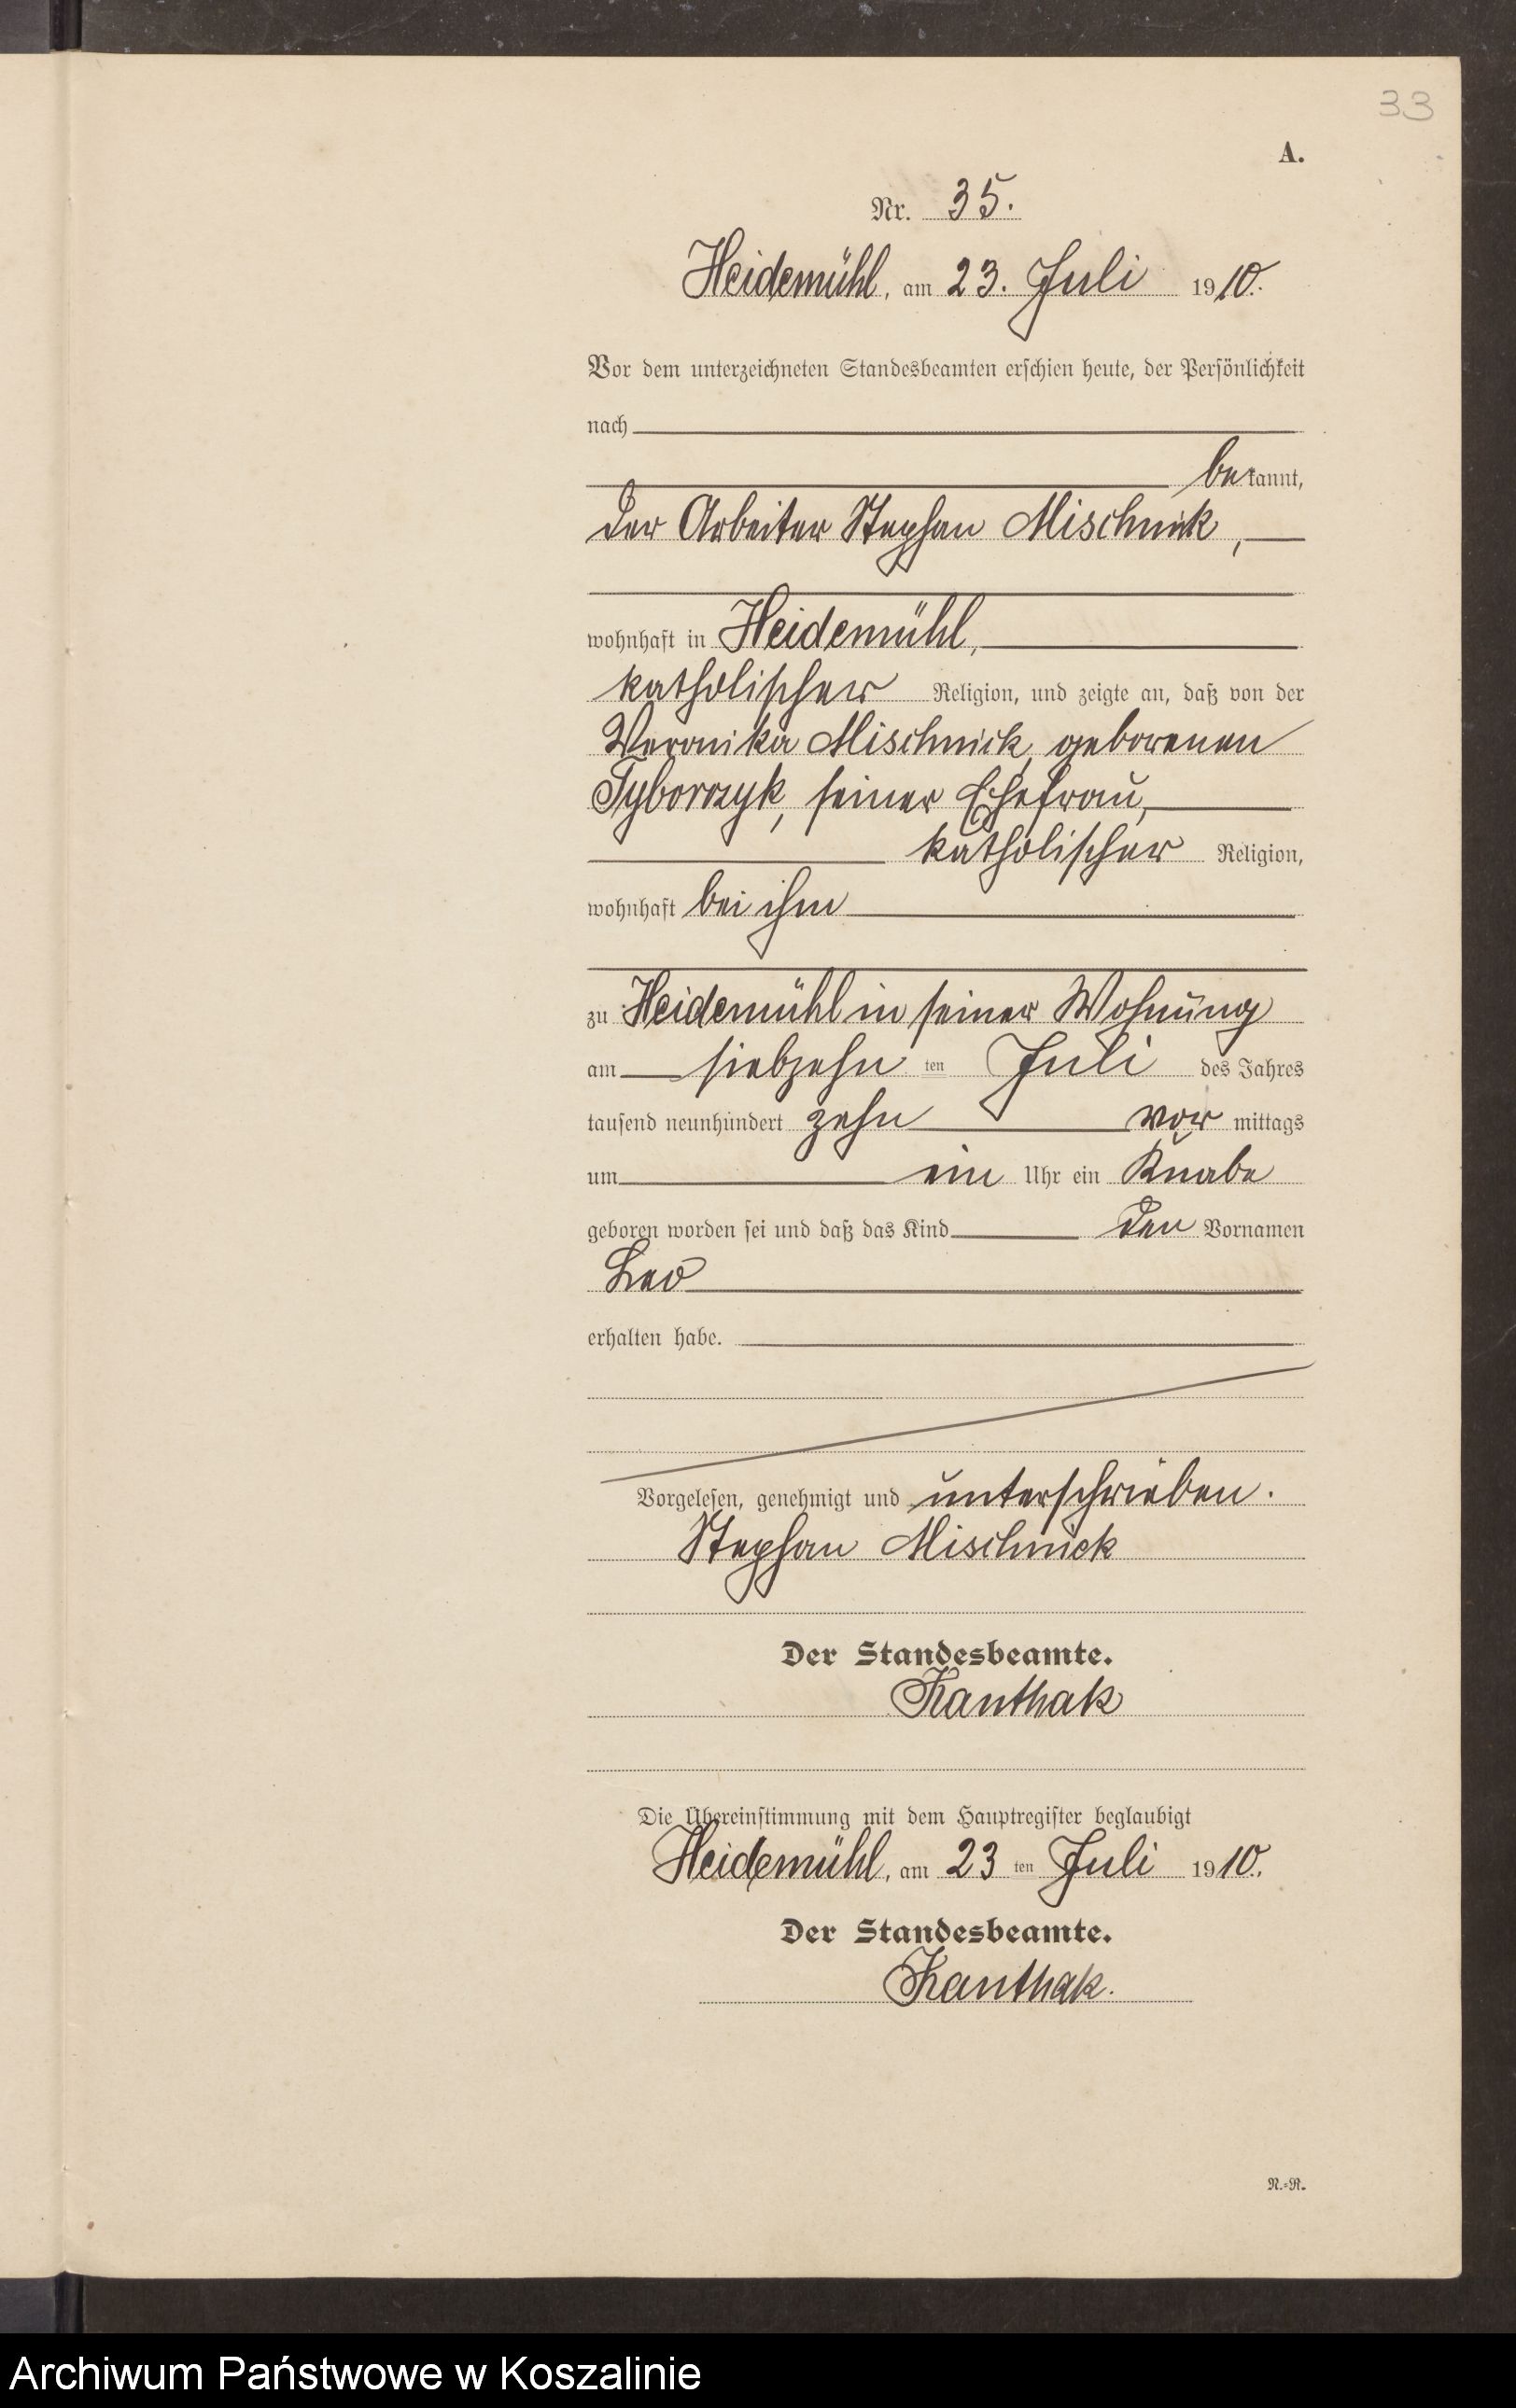 33
A.
Nr. 35.
Heidemühl, am 23. Juli 1910.
Vor dem unterzeichneten Standesbeamten erschien heute, der Persönlichkeit
nach
bekannt,
der Arbeiter Stephan Mischnick,
wohnhaft in Heidemühl,
katholischer Religion, und zeigte an, daß von der
Veronika Mischnick, geborenen
Tyborczyk, seiner Ehefrau,
katholischer Religion,
wohnhaft bei ihm
zu Heidemühl in seiner Wohnung
am siebzehn ten Juli des Jahres
tausend neunhundert zehn vor mittags
um ein Uhr ein Knabe
geboren worden sei und daß das Kind den Vornamen
Leo
erhalten habe.
Vorgelesen, genehmigt und unterschrieben.
Stephan Mischnick
Der Standesbeamte.
Kanthak
Die Übereinstimmung mit dem Hauptregister beglaubigt
Heidemühl, am 23 ten Juli 1910.
Der Standesbeamte.
Kanthak.
N.=R.
Archiwum Państwowe w Koszalinie